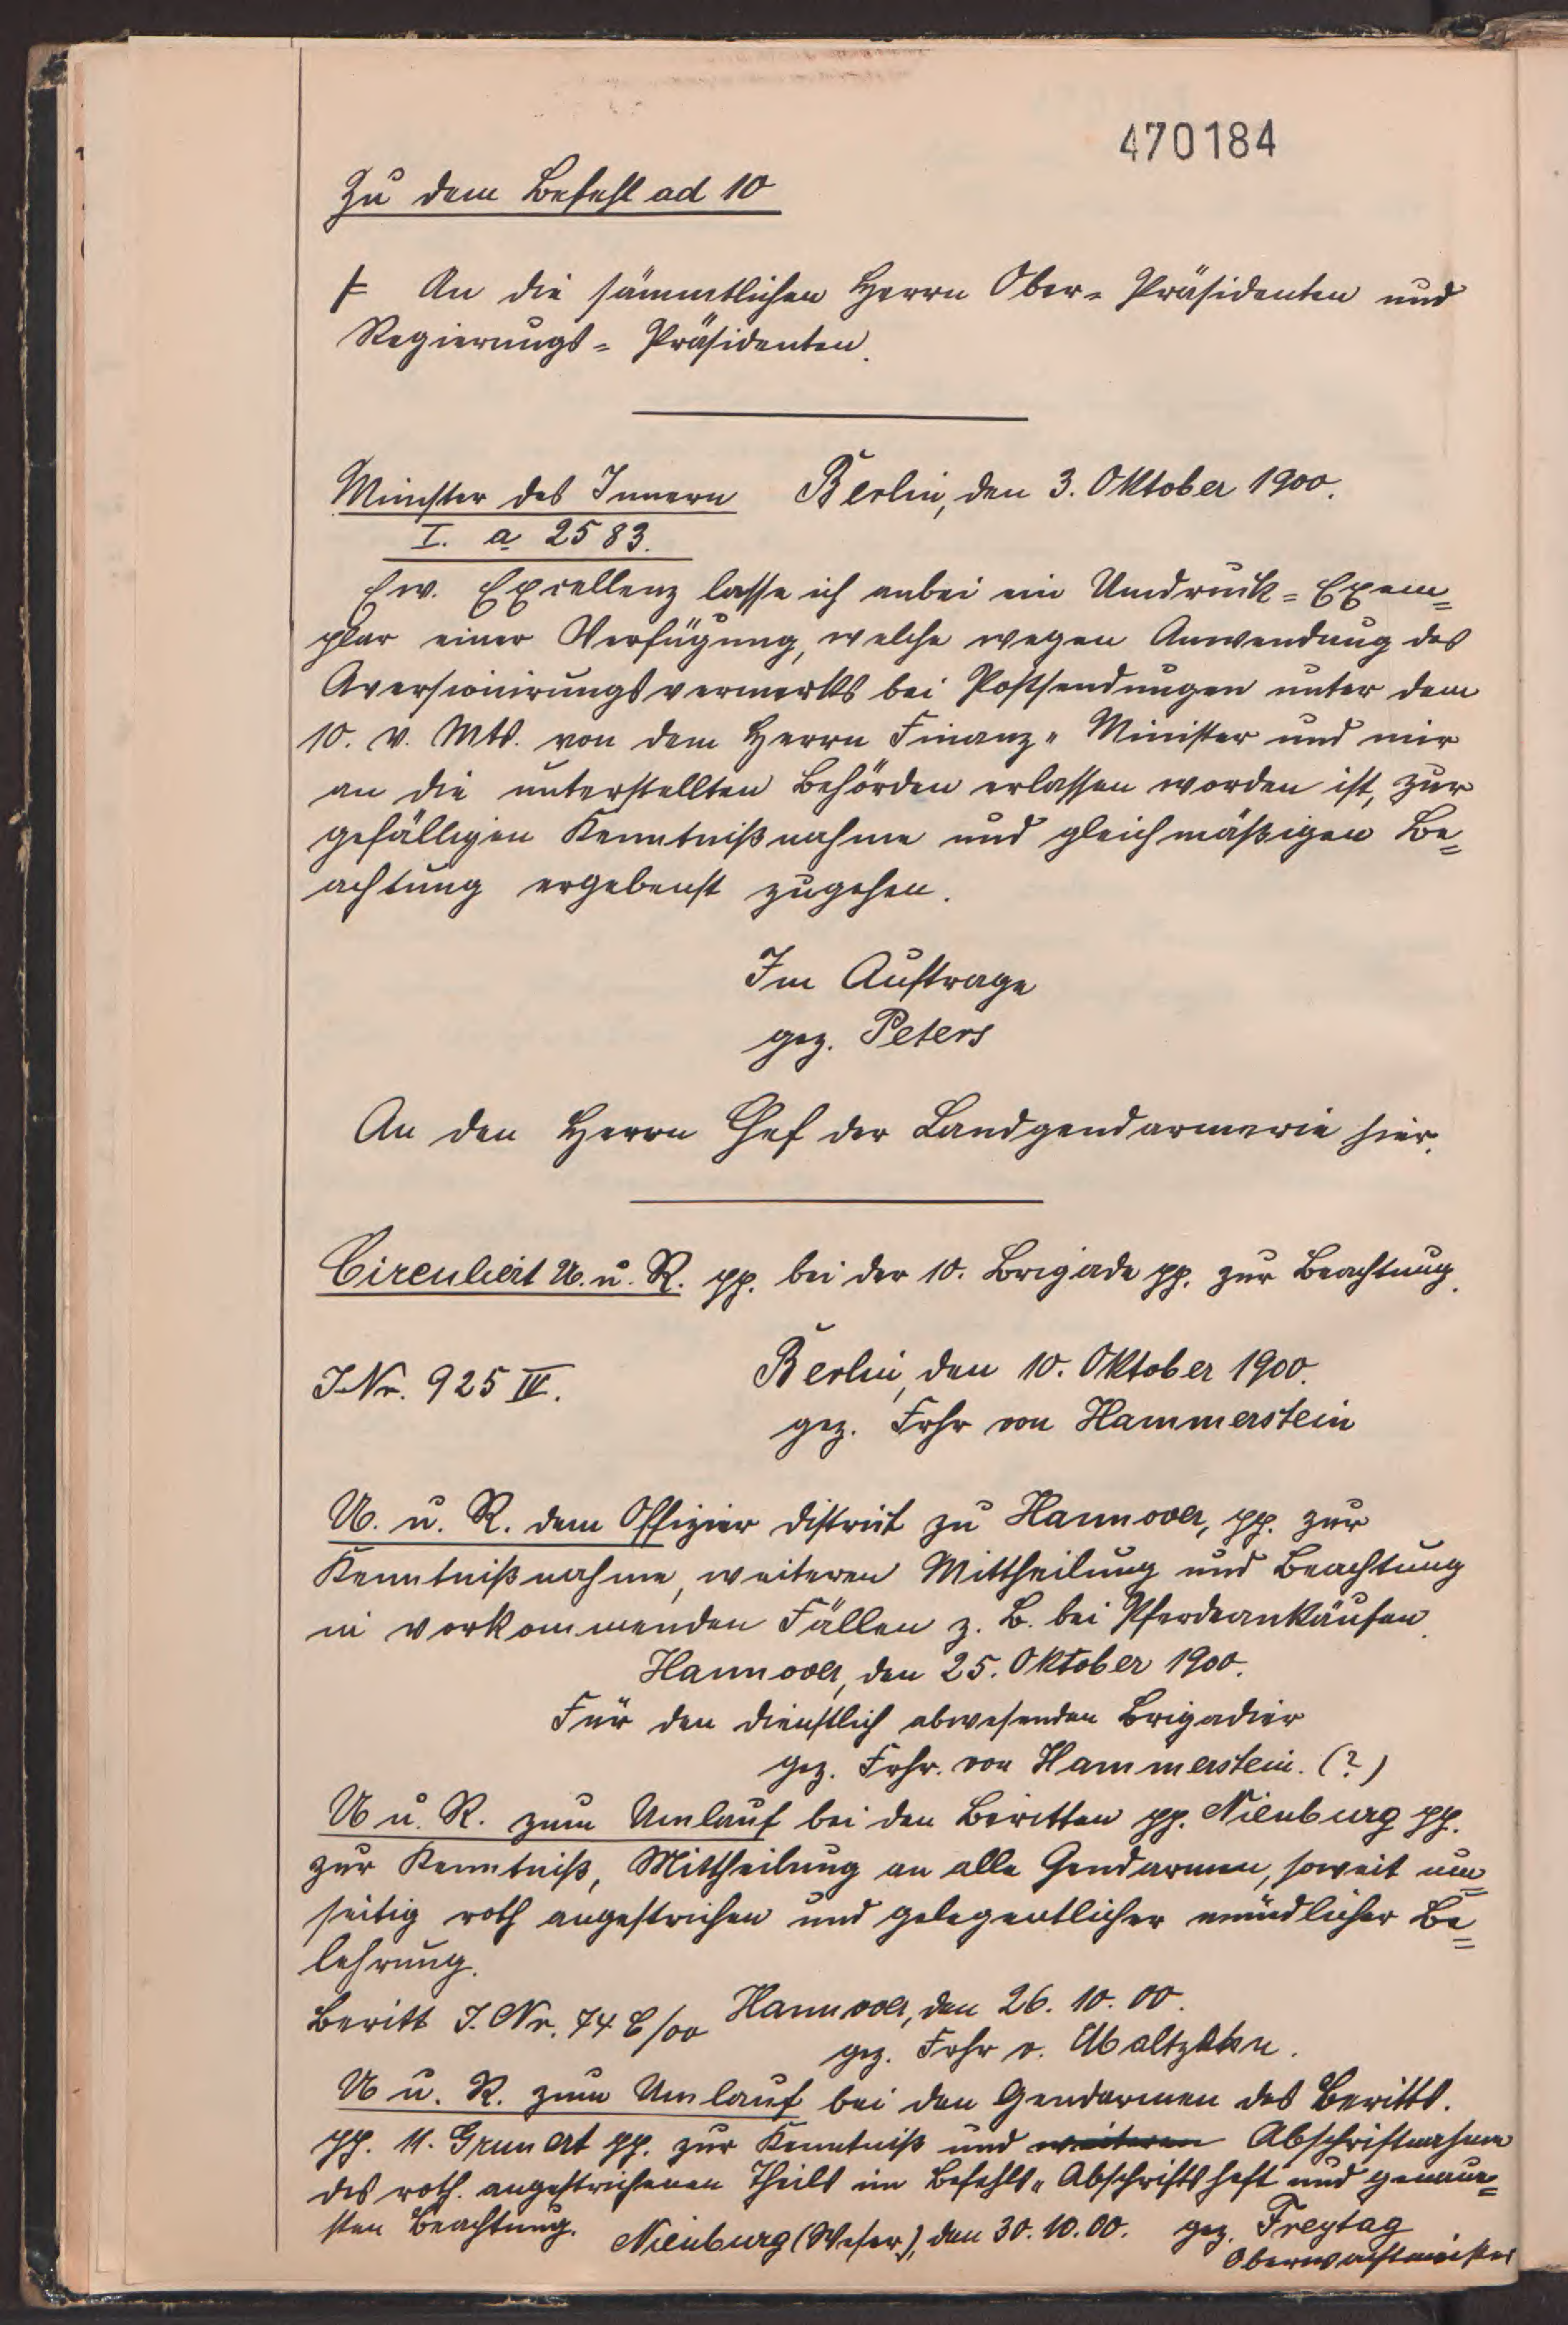 470184
Zu dem Befehl ad 10
An die sämmtlichen Herrn Ober-Präsidenten und
Regierungs-Präsidenten.
Minister des Innern Berlin, den 3. Oktober 1900.
I. a 2583.
Ew. Excellenz lasse ich anbei ein Umdruck-Exem-
plar einer Verfügung, welche wegen Anwendung des
Aversionirungsvermerks bei Postsendungen unter dem
10. v. Mts. von dem Herrn Finanz-Minister und mir
an die unterstellten Behörden erlassen worden ist, zur
gefälligen Kenntnißnahme und gleichmäßigen Be-
achtung ergebenst zugehen.
Im Auftrage
gez. Peters
An den Herrn Chef der Landgendarmerie hier.
Circulirt U. u. R. pp. bei der 10. Brigade pp. zur Beachtung.
J.Nr. 925 IV. Berlin, den 10. Oktober 1900.
gez. Frhr von Hammerstein
U. u. R. dem Offizier District zu Hannover, pp. zur
Kenntnißnahme, weiteren Mittheilung und Beachtung
in vorkommenden Fällen z. B. bei Pferdeankäufen.
Hannover, den 25. Oktober 1900.
Für den dienstlich abwesenden Brigadier
gez. Frhr. von Hammerstein. (?)
U u. R. zum Umlauf bei den Beritten pp. Nienburg pp.
zur Kenntniß, Mittheilung an alle Gendarmen, soweit um-
seitig roth angestrichen und gelegentlicher mündlicher Be-
lehrung.
Beritt J. Nr. /00 Hannover, den 26. 10. 00.
gez. Frhr v. Maltzahn.
U u. R. zum Umlauf bei den Gendarmen des Beritts.
pp. 11. Grunert pp. zur Kenntniß und weiteren Abschriftnahme
des roth. angestrichenen Theils im Befehls-Abschriftsheft und genaue-
sten Beachtung. Nienburg (Weser), den 30. 10. 00. gez. Freytag
Oberwachtmeister